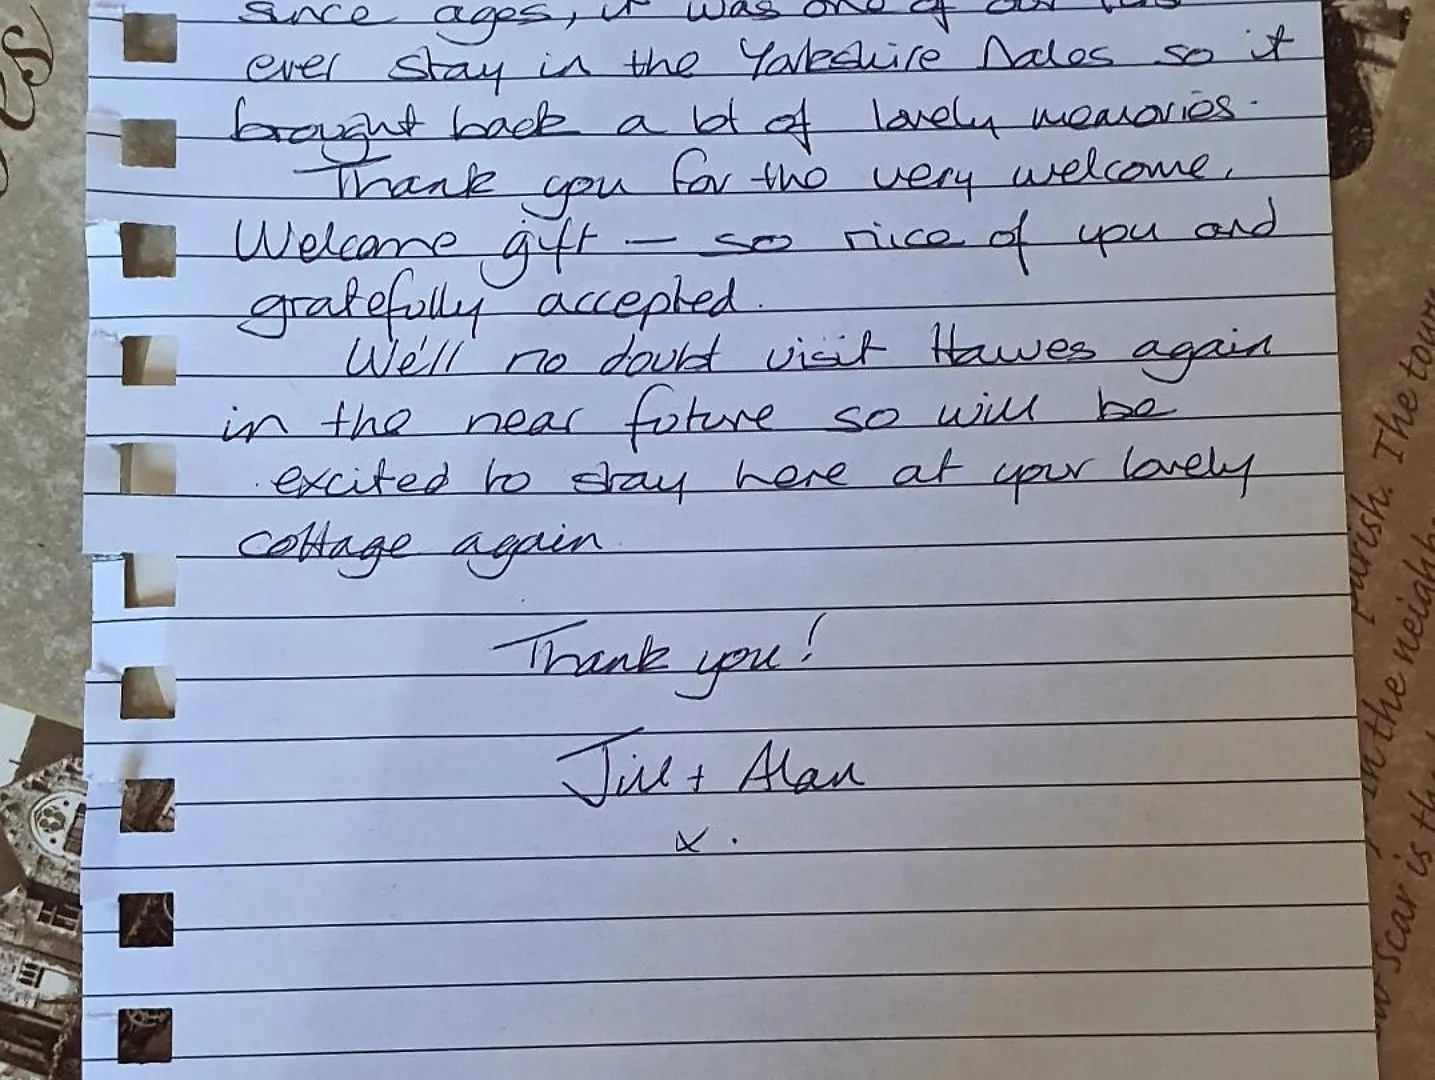 since ages, it was one of our
ever stay in the Yorkshire Dales so it
brought back a lot of lovely memories.
Thank you for the very welcome,
Welcome gift — so nice of you and
gratefully accepted.
We'll no doubt visit Hawes again
in the near future so will be
excited to stay here at your lovely
cottage again
Thank you!
Jill + Alan
x.
es
parish. The town
in the neighb
scar is th